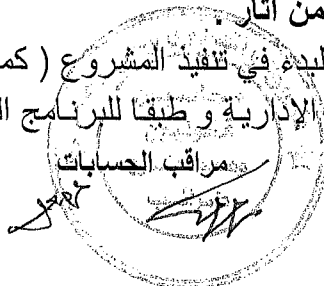 من اثار .
لبدء في تنفيذ المشروع ( كم
الإدارية و طبقا للبرنامج ال
مراقب الحسابات